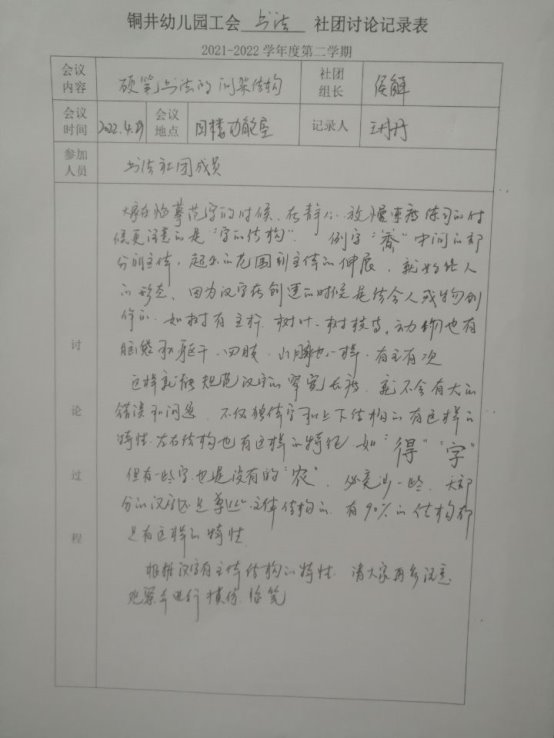 铜井幼儿园工会 书法 社团讨论记录表
2021-2022 学年度第二学期
会议内容 硬笔书法的间架结构 社团组长 侯
会议时间 2022.4.29 会议地点 四楼功能室 记录人 王丹丹
参加人员 书法社团成员
讨论过程
大家在临摹范字的时候,在静心、放慢重复练习的时
候更注意的是“字的结构”。 例字“斋”中间的部
分则主体,起外的范围则主体的伸展,就好徒人
的形态,因为汉字在创造的时候是结合人或物创
作的。如树有主杆、树叶、树枝等,动物也有
脑袋和躯干、四肢,山脉也一样,有主有次
这样就能规范汉字的窄宽长短,就不会有大的
错误和问题。不仅独体字和上下结构的有这样的
特性,左右结构也有这样的特征,如“得”“字”
但有一些字也是没有的“农”,必竟少一些,大部
分的汉字还是 主体结构的,有90%的结构都
是有这样的特性。
根据汉字有主体结构的特性,请大家再多注意
观察并进行模仿、临笔